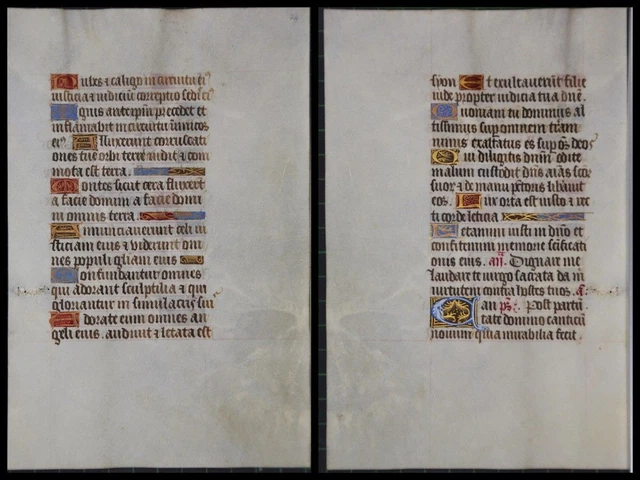 Nubes & caligo in circuitu ei⁹
iusticia & iudiciū correptio sedis ei⁹
Ignis ante ipm̄ precedet et
inflamabit in circuitu inimicos
ei⁹ Illuxerunt coruscati
ones tue orbi terre vidit & com
mota est terra.
Montes sicut cera fluxert̄
a facie domini a facie domi
ni omnis terra.
Annunciaverunt celi iu
sticiam eius & viderunt om
nes populi gliam eius
Confundantur omnes
qui adorant sculptilia & qui
gloriantur in simulacris sui
Adorate eum omnes an
geli eius. audivit & letata est
syon Et exultaverūt filie
iude propter iudicia tua dn̄e.
Quoniam tu dominus al
tissimus sup omnem terām
nimis exaltatus es sup ōs deos
Qui diligitis dnm̄ odite
malum custodit dn̄s aīas scōr
suor & de manu pctōris libavit
eos. Lux orta est iusto & rec
tis corde leticia
Letamini iusti in dnō et
confitemini memorie sc̄ificati
onis eius. an̄. Dignare me
laudare te virgo sacrata da m̄
virtutem contra hostes tuos. a̅
Can ps̄. Post partū.
tate domino canticū
novum quia mirabilia fecit.